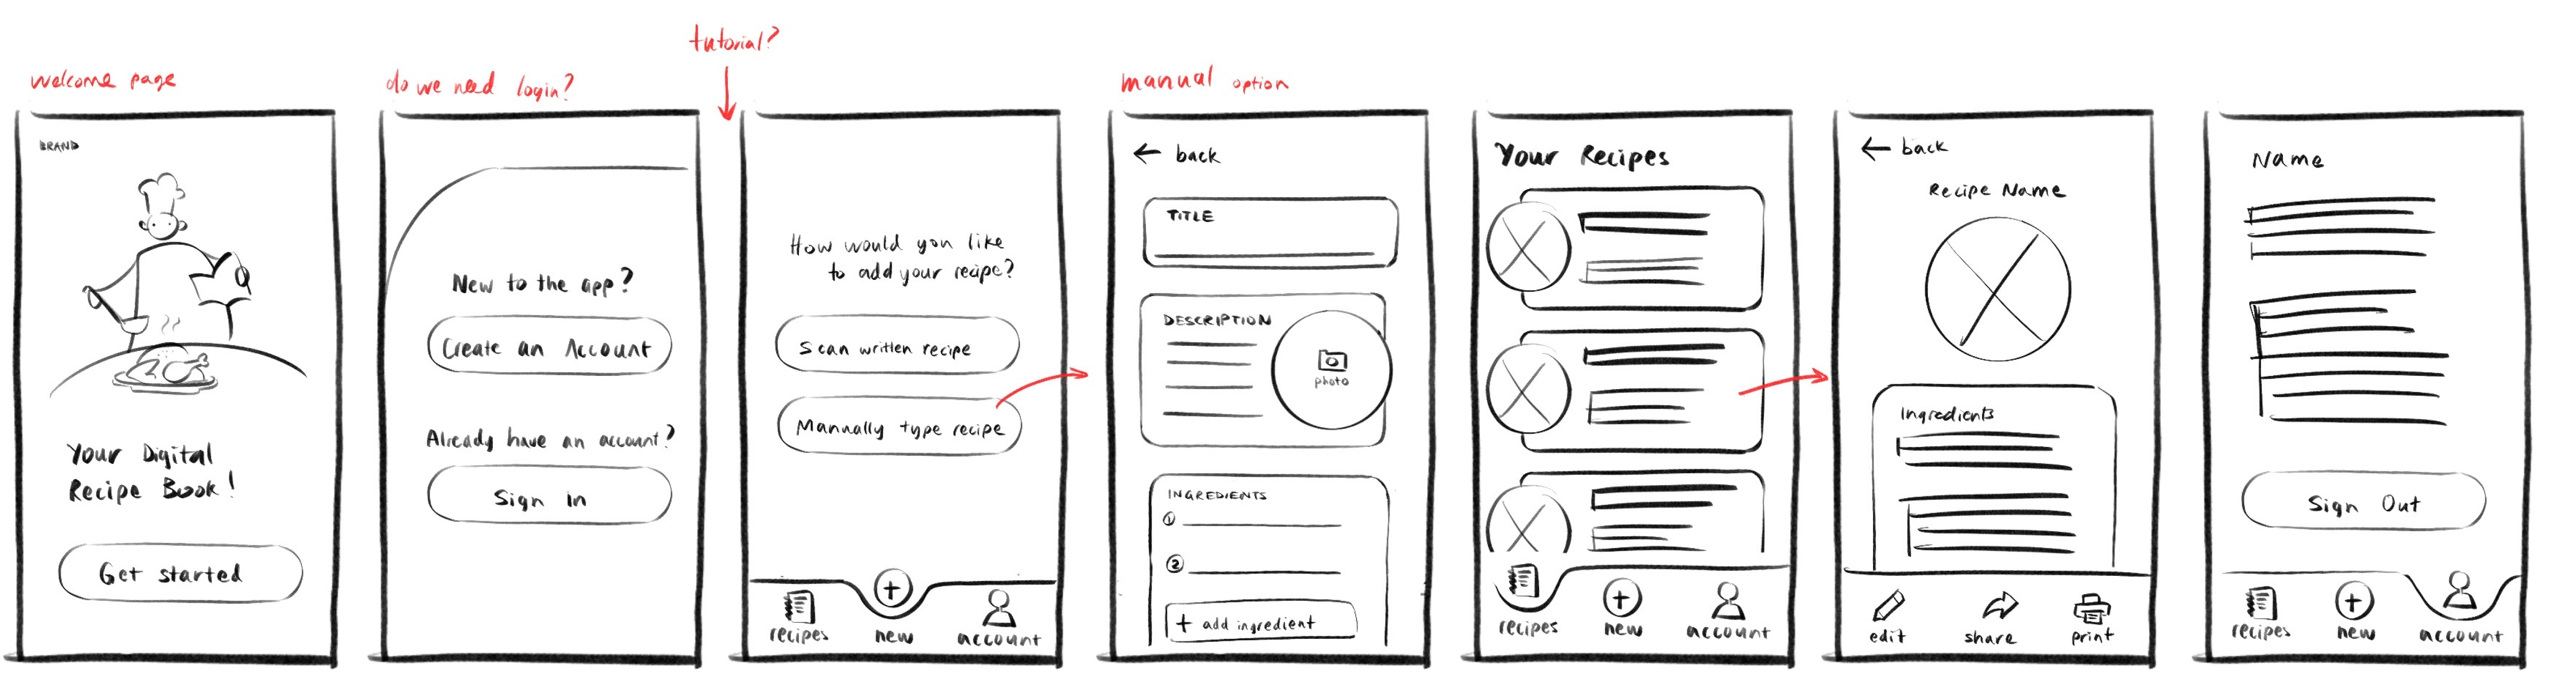 welcome page
BRAND
Your Digital
Recipe Book!
Get started
do we need login?
New to the app?
Create an Account
Already have an account?
Sign In
tutorial?
How would you like
to add your recipe?
Scan written recipe
Manually type recipe
recipes
new
account
manual option
← back
TITLE
DESCRIPTION
photo
INGREDIENTS
①
②
+ add ingredient
Your Recipes
recipes
new
account
← back
Recipe Name
Ingredients
edit
share
print
Name
Sign Out
recipes
new
account